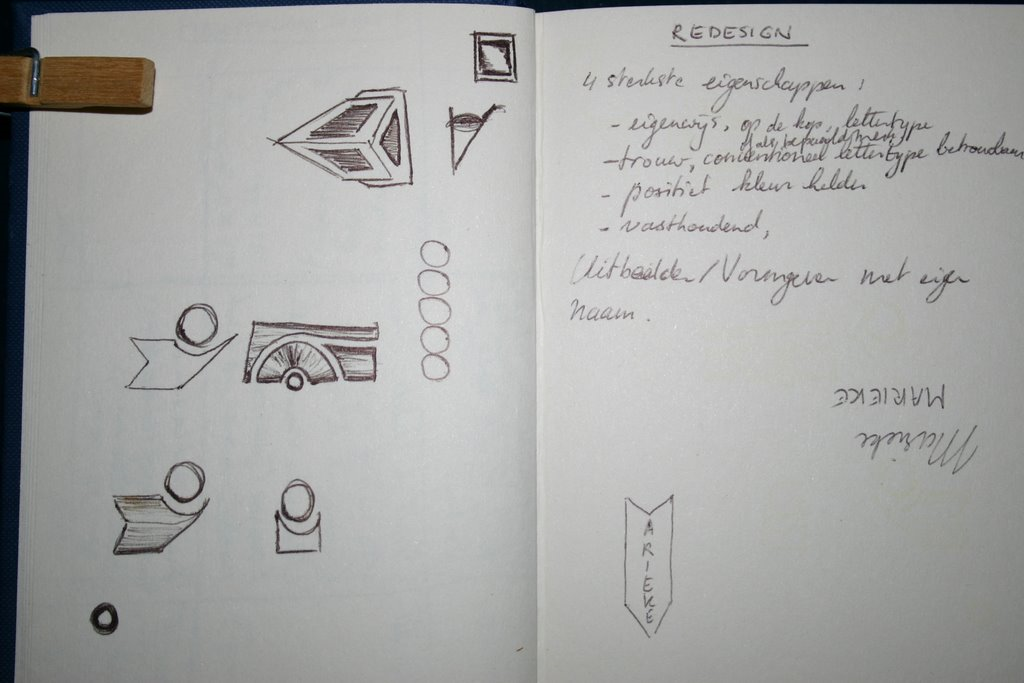 REDESIGN
4 sterkste eigenschappen:
- eigenwijs, op de kop, lettertype
of als beeldmerk
- trouw, conventioneel lettertype betrouwbaar
- positief kleur helder
- vasthoudend,
Uitbeelden/Vormgeven met eigen
naam.
MARIEKE
Marieke
ARIEKE